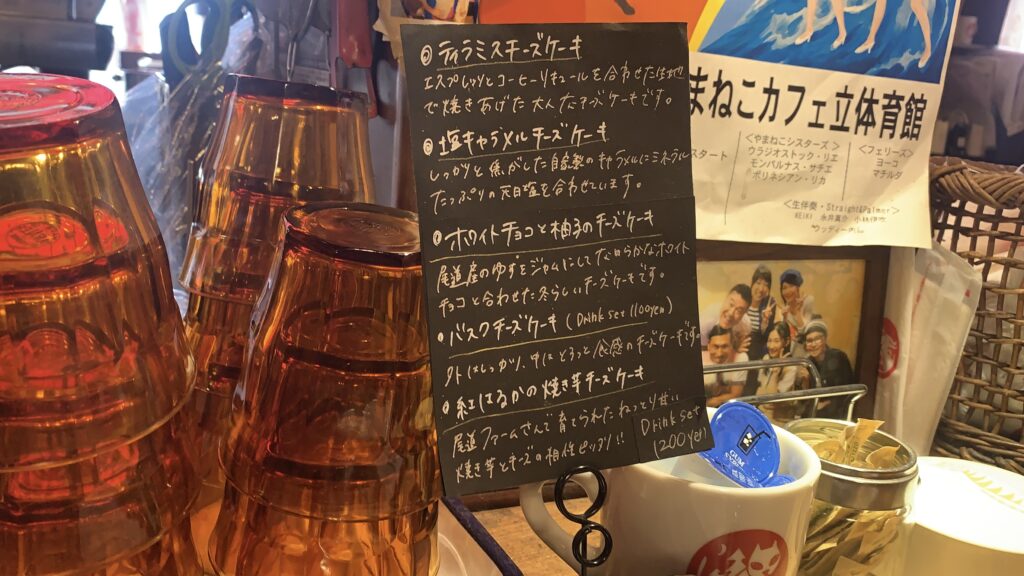 ◎ティラミスチーズケーキ
エスプレッソとコーヒーリキュールを合わせた生地
で焼きあげた大人なチーズケーキです。
◎塩キャラメルチーズケーキ
しっかりと焦がした自家製のキャラメルにミネラル
たっぷりの天日塩を合わせています。
◎ホワイトチョコと柚子のチーズケーキ
尾道産のゆずをジャムにしてなめらかなホワイト
チョコと合わせた冬らしいチーズケーキです。
・バスクチーズケーキ (Drink set 1100yen)
外はしっかり、中はとろっと食感のチーズケーキです。
◎紅はるかの焼き芋チーズケーキ
尾道ファームさんで育てられたねっとり甘い
焼き芋とチーズの相性ピッタリ!!
Drink set
1200yen
まねこカフェ立体育館
スタート
<やまねこシスターズ>
ウラジオストック・リエ
モンパルナス・サチエ
ポリネシアン・リカ
<フェリーズ>
ヨーコ
マチルダ
<生伴奏・Straight&Palmer>
KEIKI
GUM